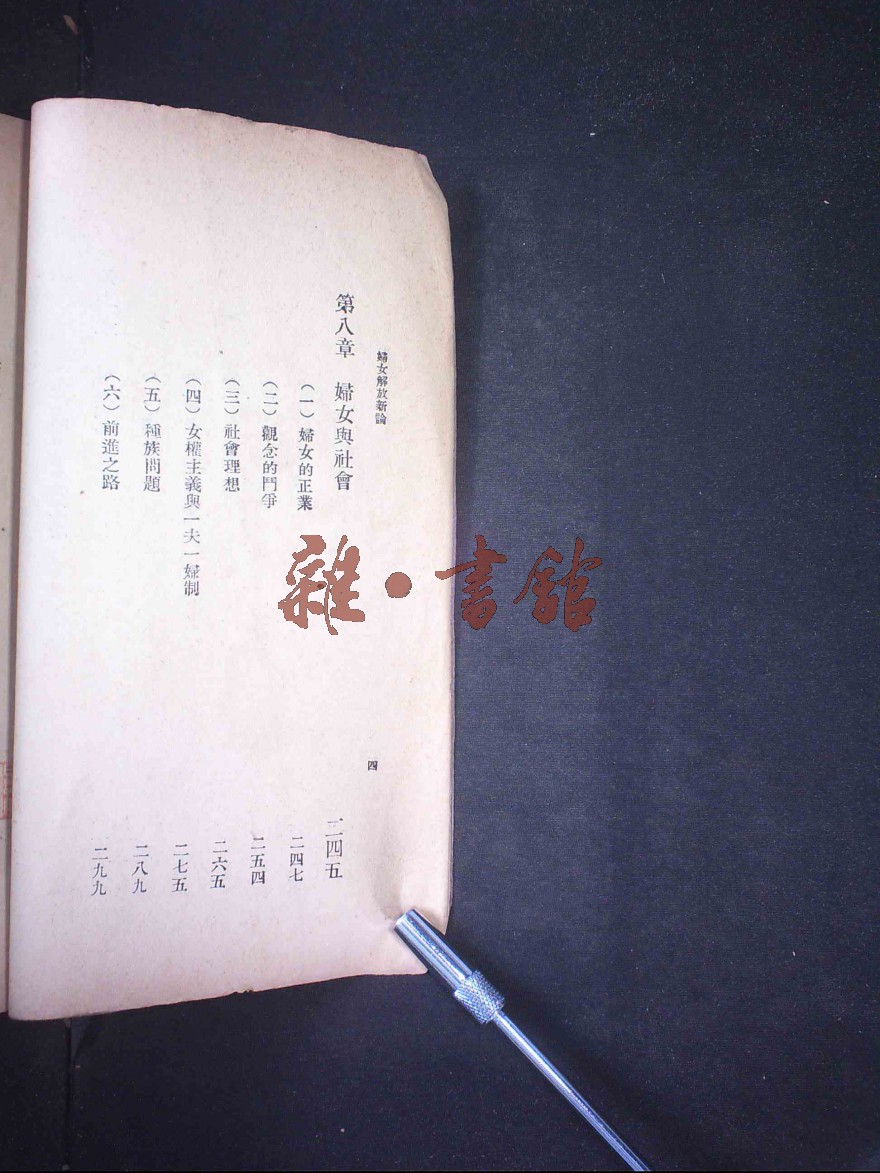 婦女解放新論
四
第八章　婦女與社會　二四五
（一）婦女的正業　二四七
（二）觀念的鬥爭　二五四
（三）社會理想　二六五
（四）女權主義與一夫一婦制　二七五
（五）種族問題　二八九
（六）前進之路　二九九
雜·書館